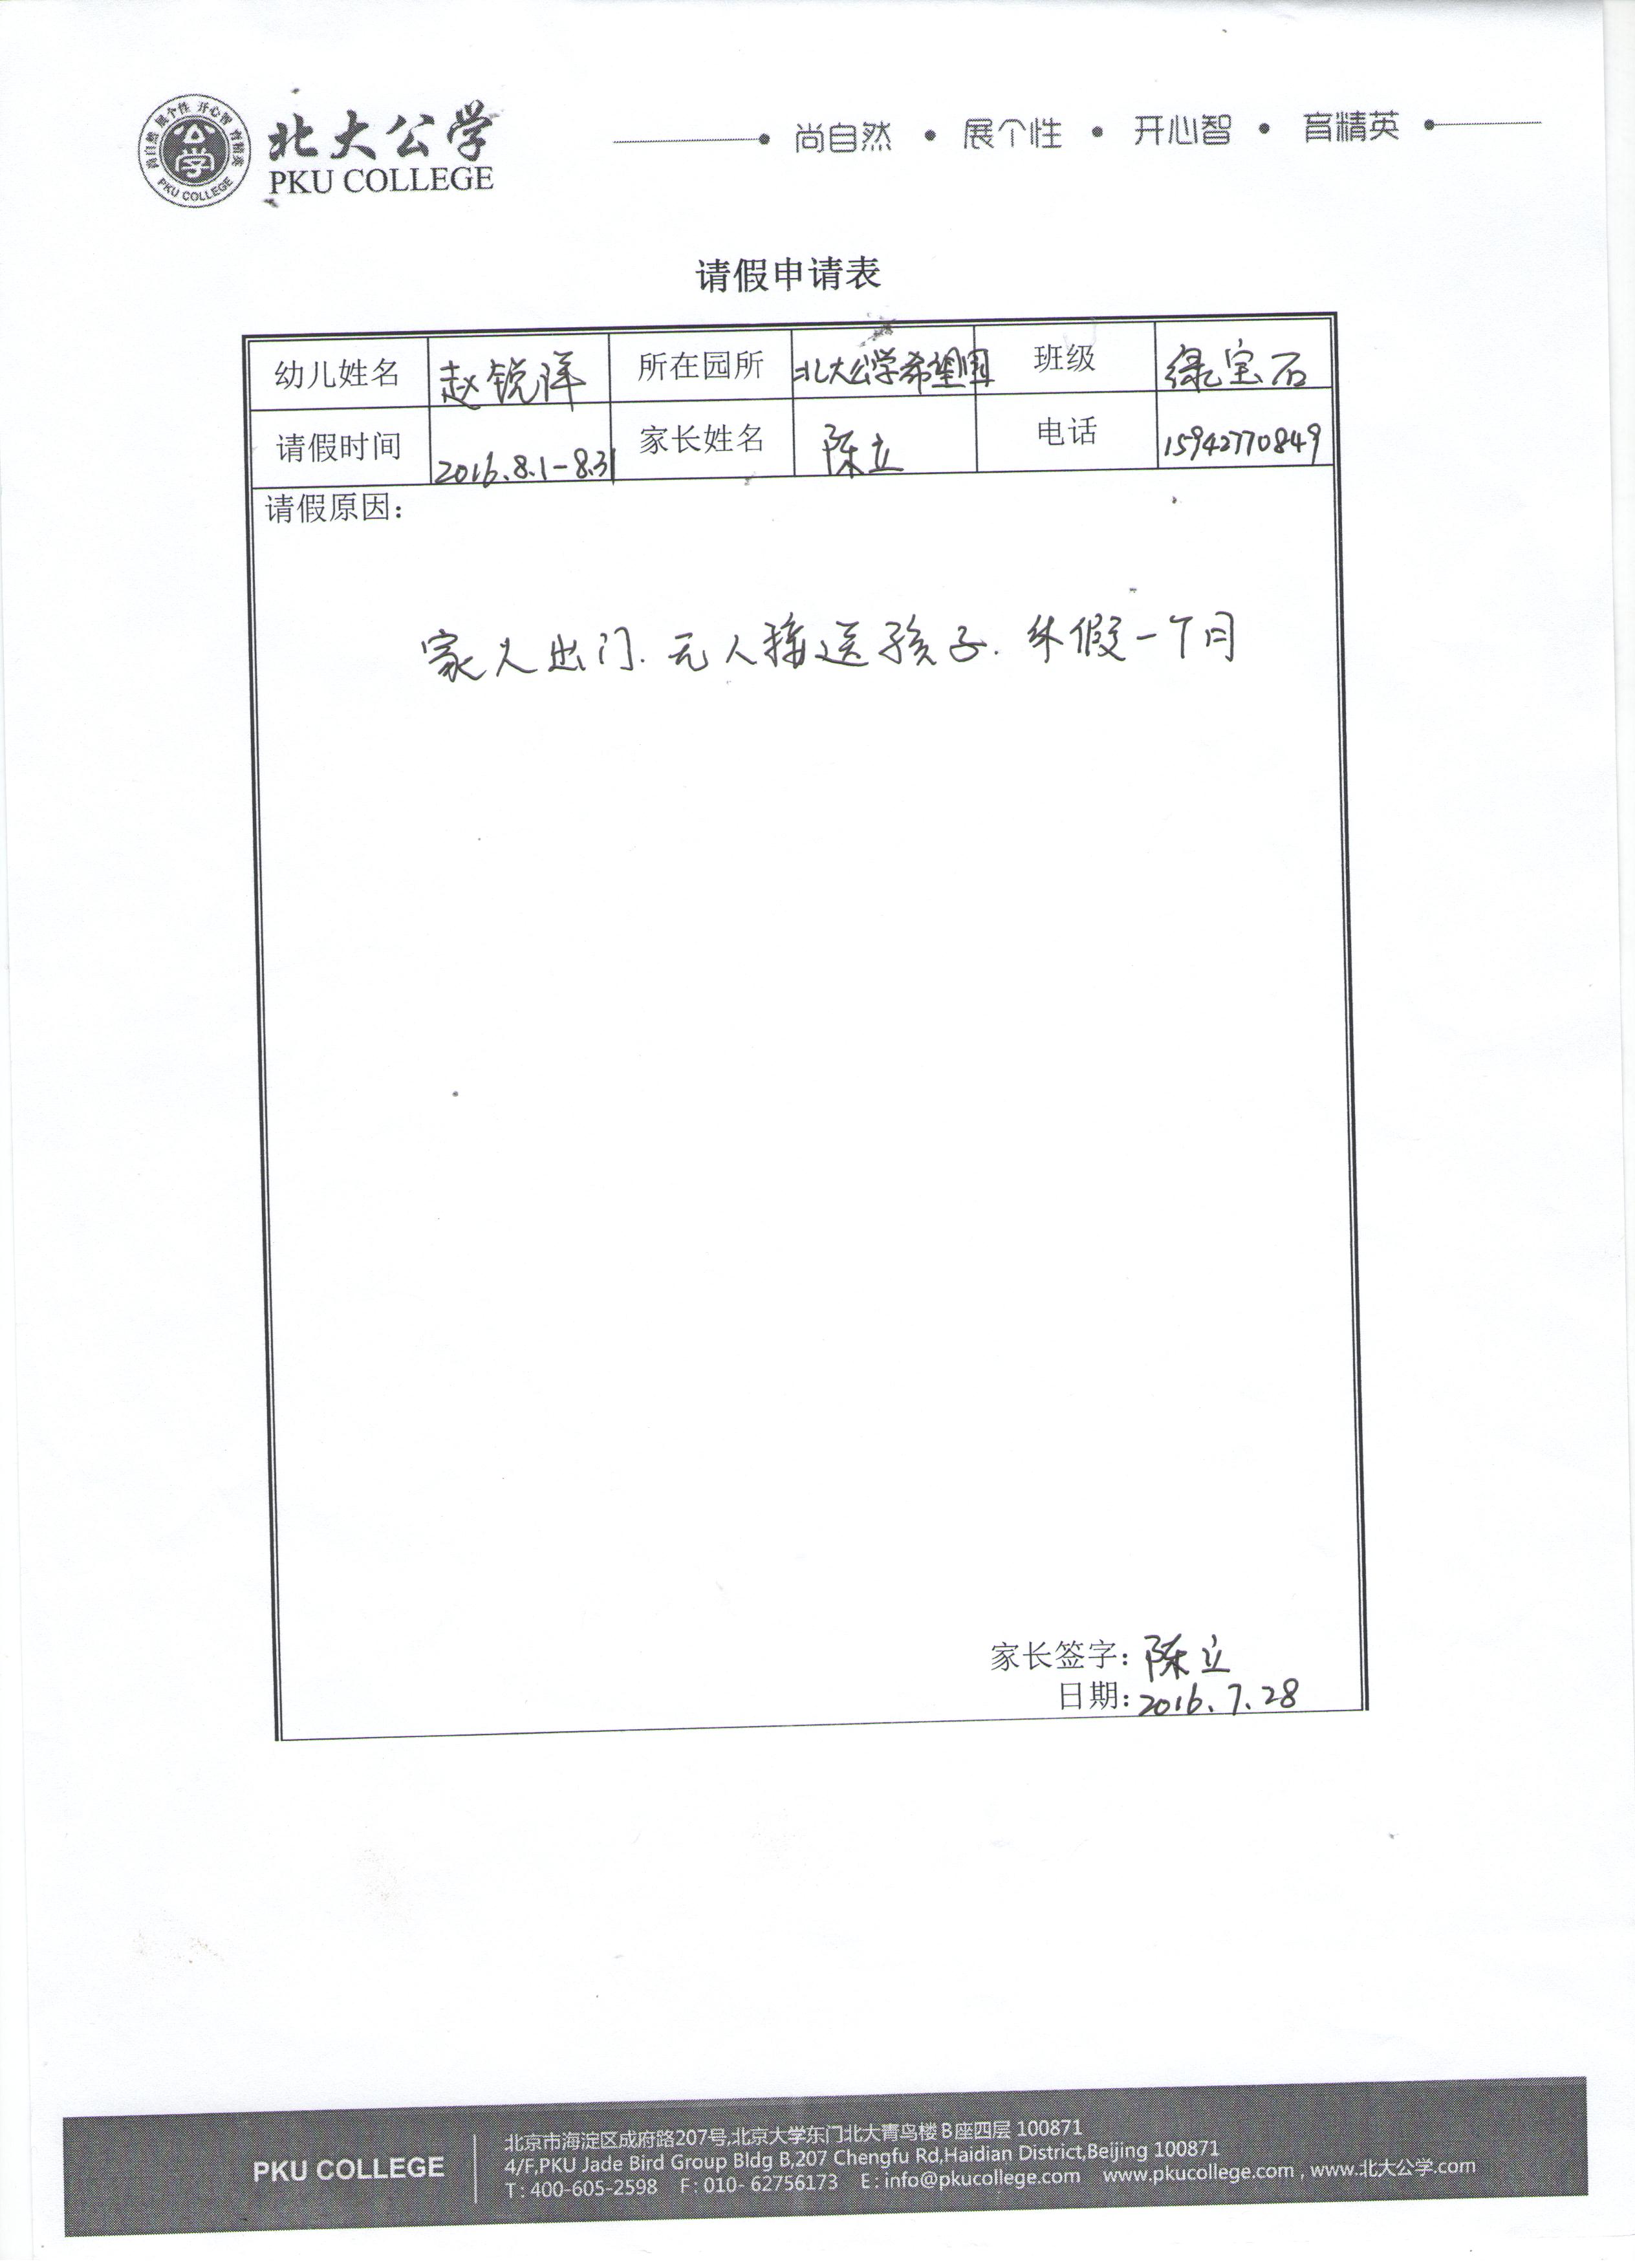 尚自然 展个性 开心智 育精英
PKU COLLEGE
公学
北大公学
PKU COLLEGE
尚自然 · 展个性 · 开心智 · 育精英
请假申请表
幼儿姓名 赵锐洋 所在园所 北大公学希望园 班级 绿宝石
请假时间 2016.8.1-8.31 家长姓名 陈立 电话 15942770849
请假原因:
家人出门.无人接送孩子.休假一个月
家长签字: 陈立
日期: 2016.7.28
PKU COLLEGE
北京市海淀区成府路207号,北京大学东门北大青鸟楼B座四层 100871
4/F,PKU Jade Bird Group Bldg B,207 Chengfu Rd,Haidian District,Beijing 100871
T: 400-605-2598 F: 010- 62756173 E: info@pkucollege.com www.pkucollege.com , www.北大公学.com